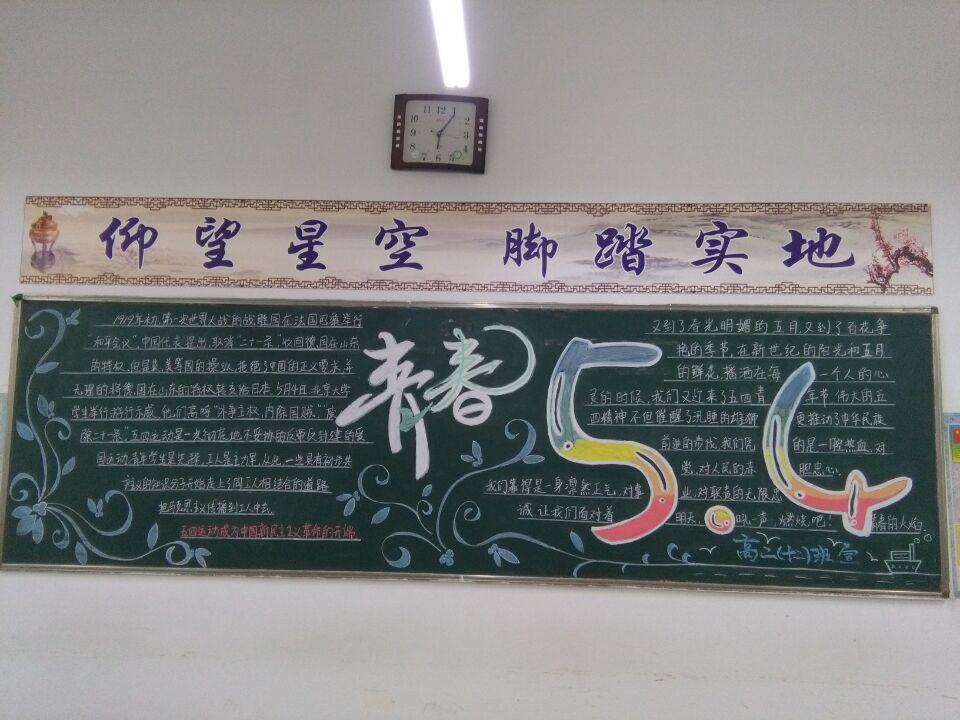 仰望星空 脚踏实地
1919年初,第一次世界大战的战胜国在法国巴黎举行
"和平会议",中国代表提出,取消"二十一条",收回德国在山东
的特权,但是英、美等国的操纵,拒绝了中国的正义要求,并
无理的将德国在山东的特权转交给日本。5月4日,北京大学
学生举行游行示威,他们高呼"外争主权,内除国贼","废
除二十一条"。五四运动是一次彻底地不妥协的反帝反封建的爱
国运动,青年学生是先锋,工人是主力军,从此,一些具有初步共
产主义的知识分子开始走上了同工人相结合的道路
把马克思主义传播到工人中去。
五四运动成为中国新民主主义革命的开端
青春
5.4
又到了春光明媚的五月,又到了百花争
艳的季节,在新世纪的阳光和五月
的鲜花,播洒在每一个人的心
灵的时候,我们又迎来了五四青年节。伟大的五
四精神不但催醒了沉睡的雄狮更推动了中华民族
前进的步伐,我们凭的是一腔热血,对
党,对人民的赤胆忠心。
我们靠得是一身凛然正气,对事业,对职责的无限忠
诚,让我们面对着明天,大吼一声,燃烧吧!青春的火焰
高二(十二)班宣